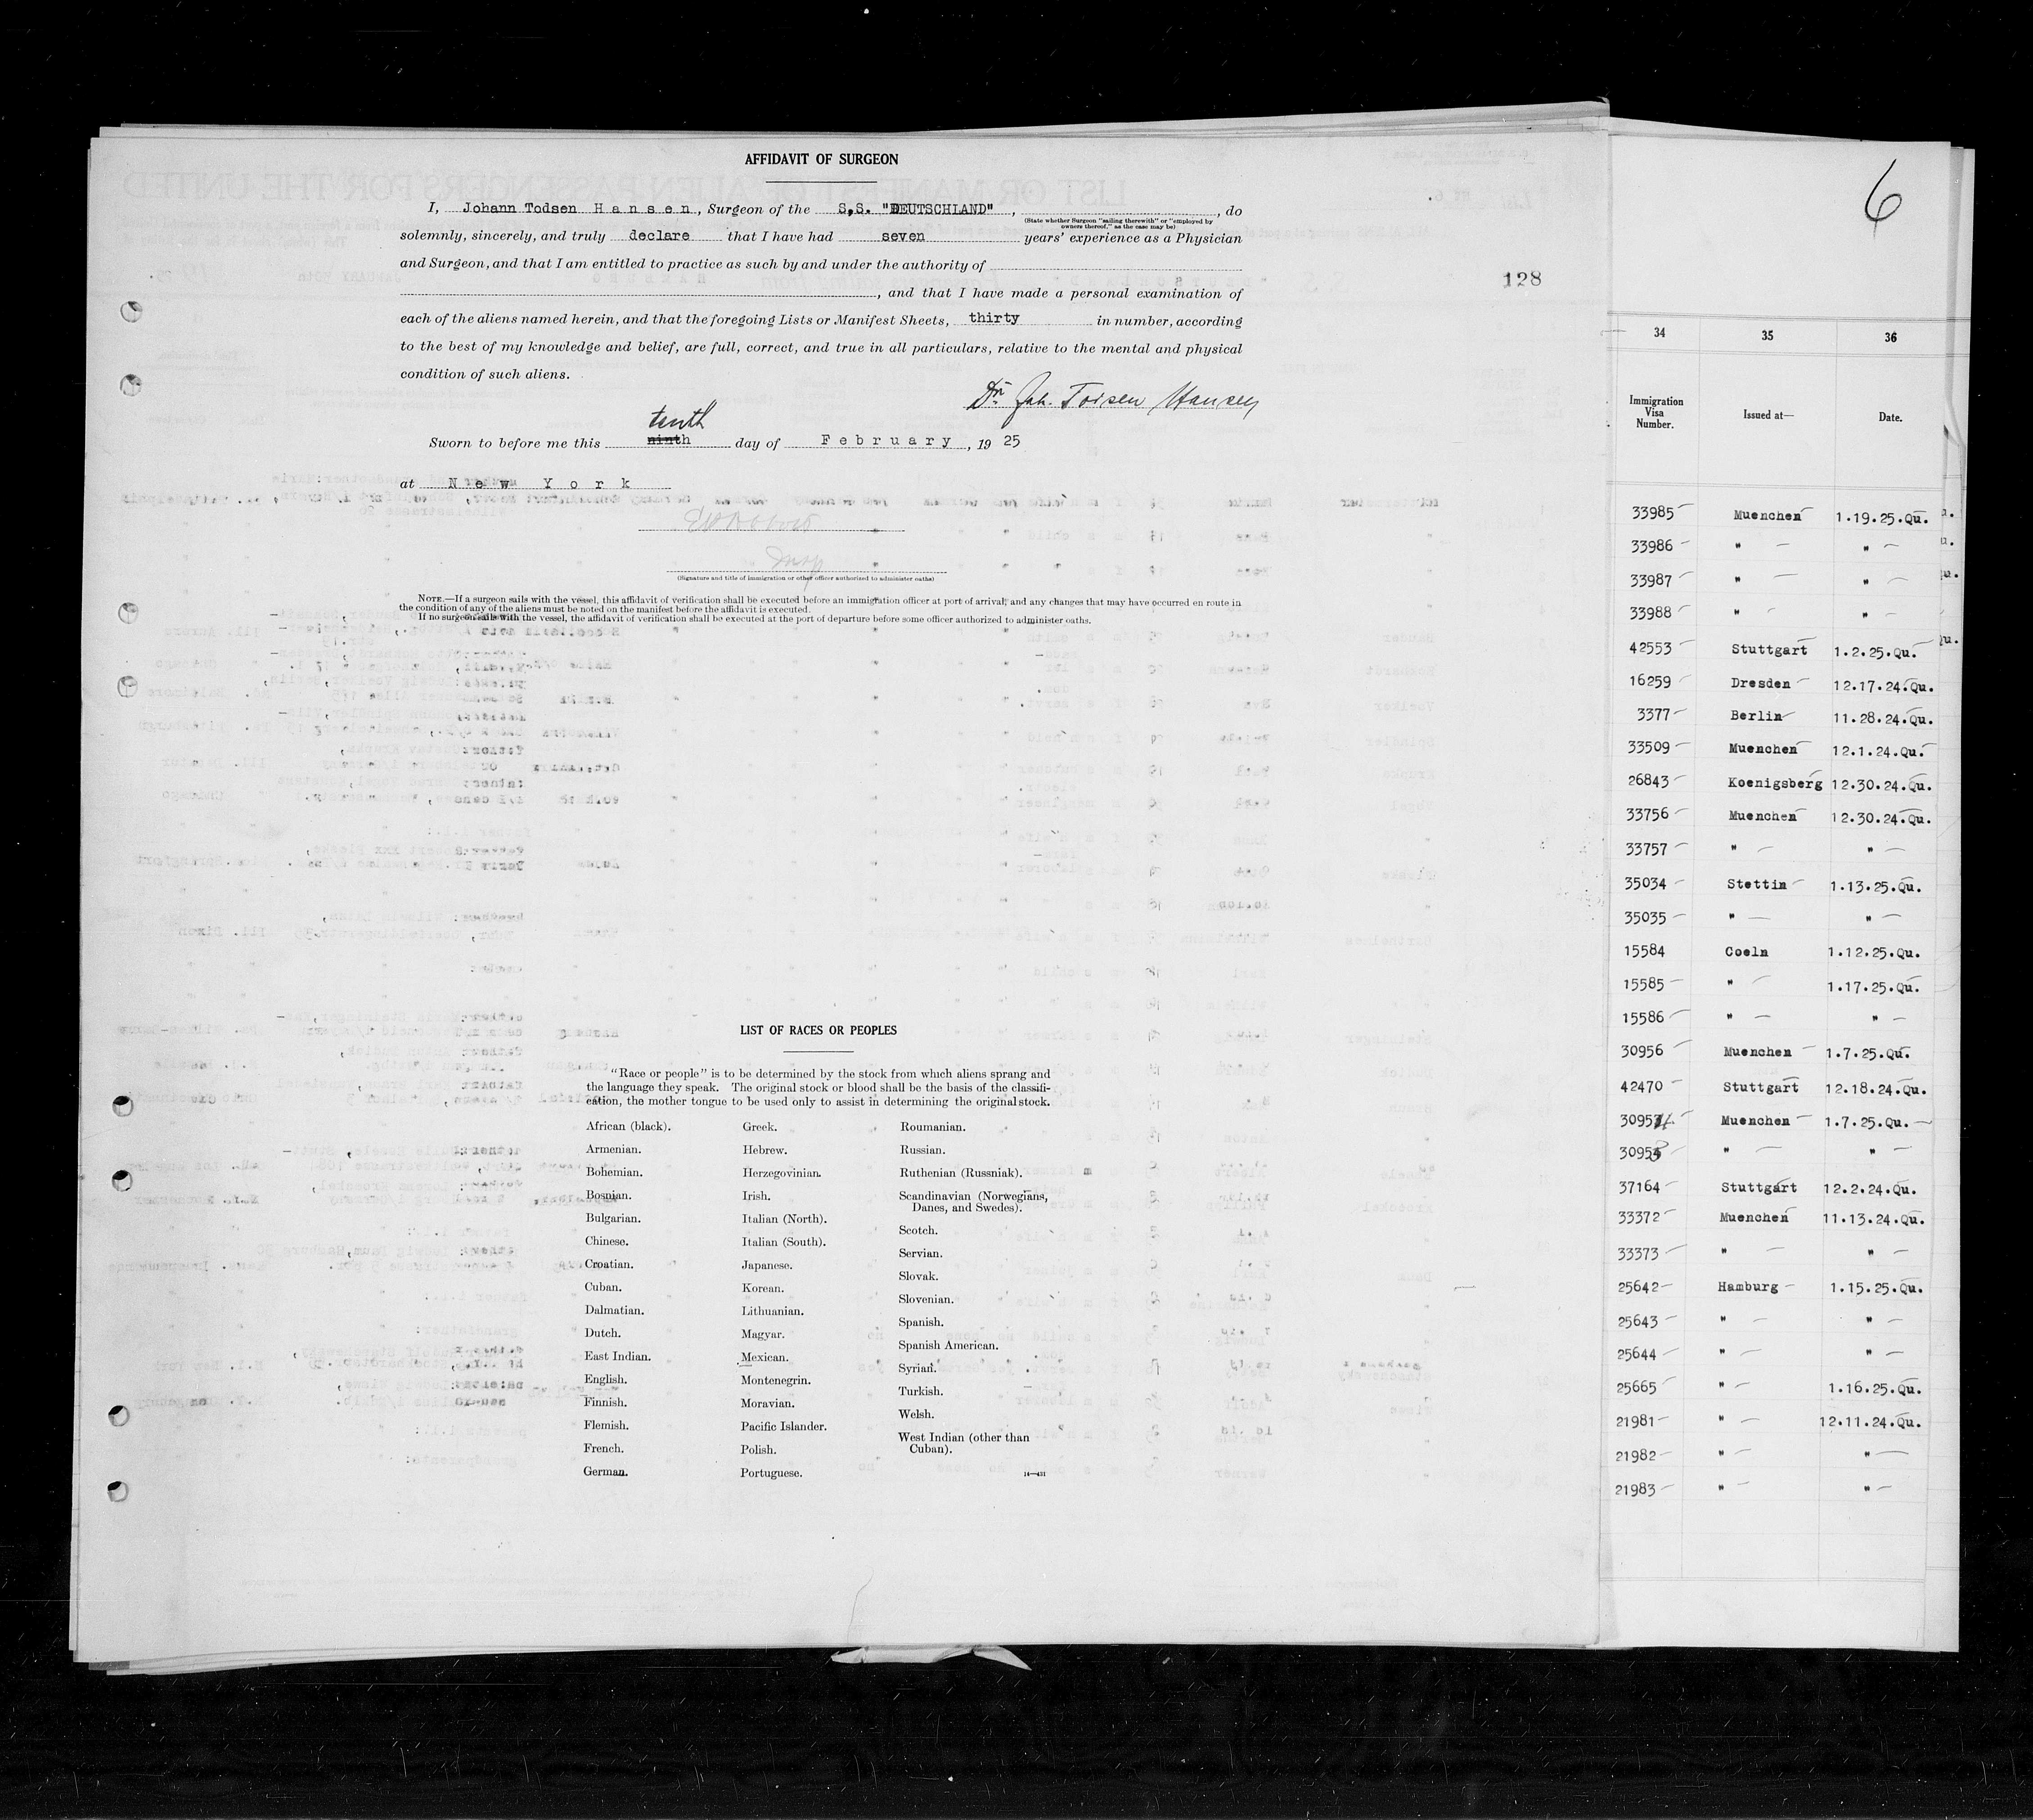 AFFIDAVIT OF SURGEON
I, Johann Todsen Hansen, Surgeon of the S.S. "DEUTSCHLAND", , do
(State whether Surgeon "sailing therewith" or "employed by
owners thereof," as the case may be)
solemnly, sincerely, and truly declare that I have had seven years' experience as a Physician
and Surgeon, and that I am entitled to practice as such by and under the authority of
, and that I have made a personal examination of
each of the aliens named herein, and that the foregoing Lists or Manifest Sheets, thirty in number, according
to the best of my knowledge and belief, are full, correct, and true in all particulars, relative to the mental and physical
condition of such aliens.
Dr. Joh. Todsen Hansen
tenth
Sworn to before me this ninth day of February, 19 25
at New York
Insp
(Signature and title of immigration or other officer authorized to administer oaths)
NOTE.—If a surgeon sails with the vessel, this affidavit of verification shall be executed before an immigration officer at port of arrival, and any changes that may have occurred en route in
the condition of any of the aliens must be noted on the manifest before the affidavit is executed.
If no surgeon sails with the vessel, the affidavit of verification shall be executed at the port of departure before some officer authorized to administer oaths.
LIST OF RACES OR PEOPLES
"Race or people" is to be determined by the stock from which aliens sprang and
the language they speak. The original stock or blood shall be the basis of the classifi-
cation, the mother tongue to be used only to assist in determining the original stock.
African (black).
Armenian.
Bohemian.
Bosnian.
Bulgarian.
Chinese.
Croatian.
Cuban.
Dalmatian.
Dutch.
East Indian.
English.
Finnish.
Flemish.
French.
German.
Greek.
Hebrew.
Herzegovinian.
Irish.
Italian (North).
Italian (South).
Japanese.
Korean.
Lithuanian.
Magyar.
Mexican.
Montenegrin.
Moravian.
Pacific Islander.
Polish.
Portuguese.
Roumanian.
Russian.
Ruthenian (Russniak).
Scandinavian (Norwegians,
Danes, and Swedes).
Scotch.
Servian.
Slovak.
Slovenian.
Spanish.
Spanish American.
Syrian.
Turkish.
Welsh.
West Indian (other than
Cuban).
14—431
128
6
34 35 36
Immigration
Visa
Number. Issued at— Date.
33985 Muenchen 1.19.25.Qu.
33986 " "
33987 " "
33988 " "
42553 Stuttgart 1.2.25.Qu.
16259 Dresden 12.17.24.Qu.
3377 Berlin 11.28.24.Qu.
33509 Muenchen 12.1.24.Qu.
26843 Koenigsberg 12.30.24.Qu.
33756 Muenchen 12.30.24.Qu.
33757 " "
35034 Stettin 1.13.25.Qu.
35035 " "
15584 Coeln 1.12.25.Qu.
15585 " 1.17.25.Qu.
15586 " "
30956 Muenchen 1.7.25.Qu.
42470 Stuttgart 12.18.24.Qu.
30954 Muenchen 1.7.25.Qu.
30953 " "
37164 Stuttgart 12.2.24.Qu.
33372 Muenchen 11.13.24.Qu.
33373 " "
25642 Hamburg 1.15.25.Qu.
25643 " "
25644 " "
25665 " 1.16.25.Qu.
21981 " 12.11.24.Qu.
21982 " "
21983 " "